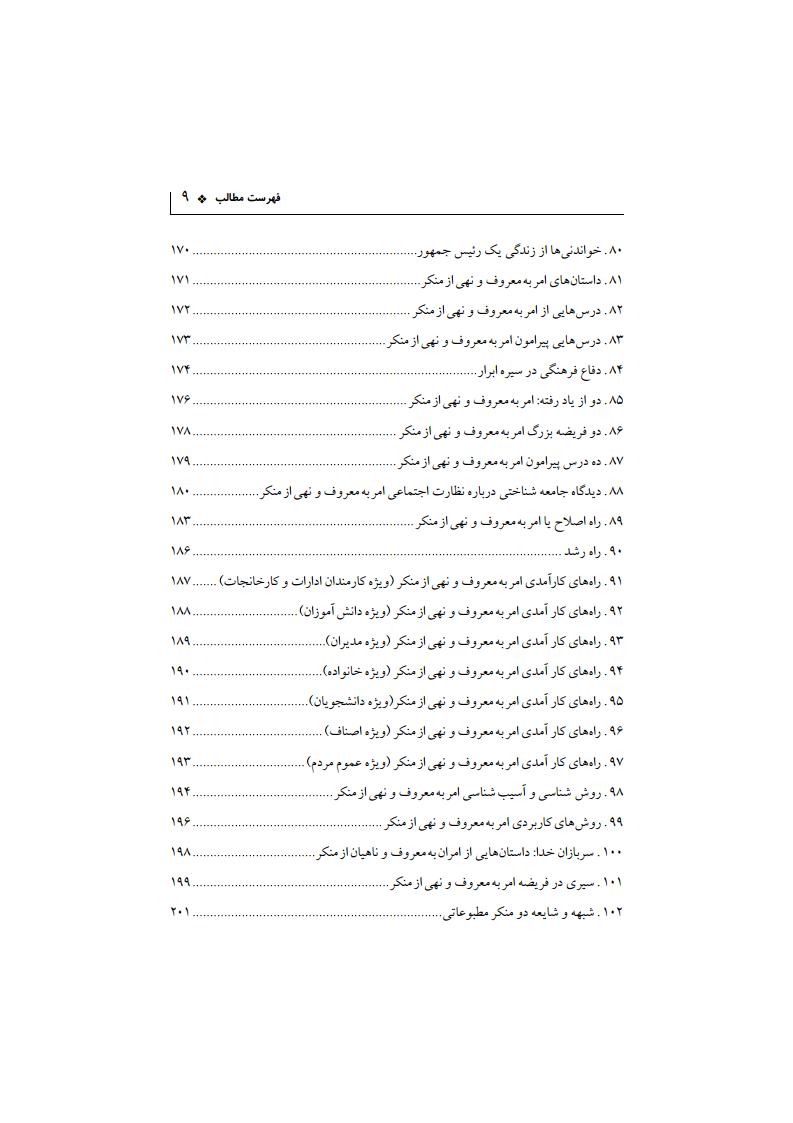 فهرست مطالب ❖ ۹
۸۰. خواندنی‌ها از زندگی یک رئیس جمهور ................................................................ ۱۷۰
۸۱. داستان‌های امر به معروف و نهی از منکر ................................................................ ۱۷۱
۸۲. درس‌هایی از امر به معروف و نهی از منکر .............................................................. ۱۷۲
۸۳. درس‌هایی پیرامون امر به معروف و نهی از منکر ....................................................... ۱۷۳
۸۴. دفاع فرهنگی در سیره ابرار ................................................................................. ۱۷۴
۸۵. دو از یاد رفته: امر به معروف و نهی از منکر ............................................................. ۱۷۶
۸۶. دو فریضه بزرگ امر به معروف و نهی از منکر .......................................................... ۱۷۸
۸۷. ده درس پیرامون امر به معروف و نهی از منکر .......................................................... ۱۷۹
۸۸. دیدگاه جامعه شناختی درباره نظارت اجتماعی امر به معروف و نهی از منکر ................... ۱۸۰
۸۹. راه اصلاح یا امر به معروف و نهی از منکر ............................................................... ۱۸۳
۹۰. راه رشد ......................................................................................................... ۱۸۶
۹۱. راه‌های کارآمدی امر به معروف و نهی از منکر (ویژه کارمندان ادارات و کارخانجات) ....... ۱۸۷
۹۲. راه‌های کار آمدی امر به معروف و نهی از منکر (ویژه دانش آموزان) .............................. ۱۸۸
۹۳. راه‌های کار آمدی امر به معروف و نهی از منکر (ویژه مدیران) ...................................... ۱۸۹
۹۴. راه‌های کار آمدی امر به معروف و نهی از منکر (ویژه خانواده) ..................................... ۱۹۰
۹۵. راه‌های کار آمدی امر به معروف و نهی از منکر(ویژه دانشجویان) ................................. ۱۹۱
۹۶. راه‌های کار آمدی امر به معروف و نهی از منکر (ویژه اصناف) ..................................... ۱۹۲
۹۷. راه‌های کار آمدی امر به معروف و نهی از منکر (ویژه عموم مردم) ................................ ۱۹۳
۹۸. روش شناسی و آسیب شناسی امر به معروف و نهی از منکر ........................................ ۱۹۴
۹۹. روش‌های کاربردی امر به معروف و نهی از منکر ...................................................... ۱۹۶
۱۰۰. سربازان خدا: داستان‌هایی از امران به معروف و ناهیان از منکر ................................... ۱۹۸
۱۰۱. سیری در فریضه امر به معروف و نهی از منکر ........................................................ ۱۹۹
۱۰۲. شبهه و شایعه دو منکر مطبوعاتی ....................................................................... ۲۰۱